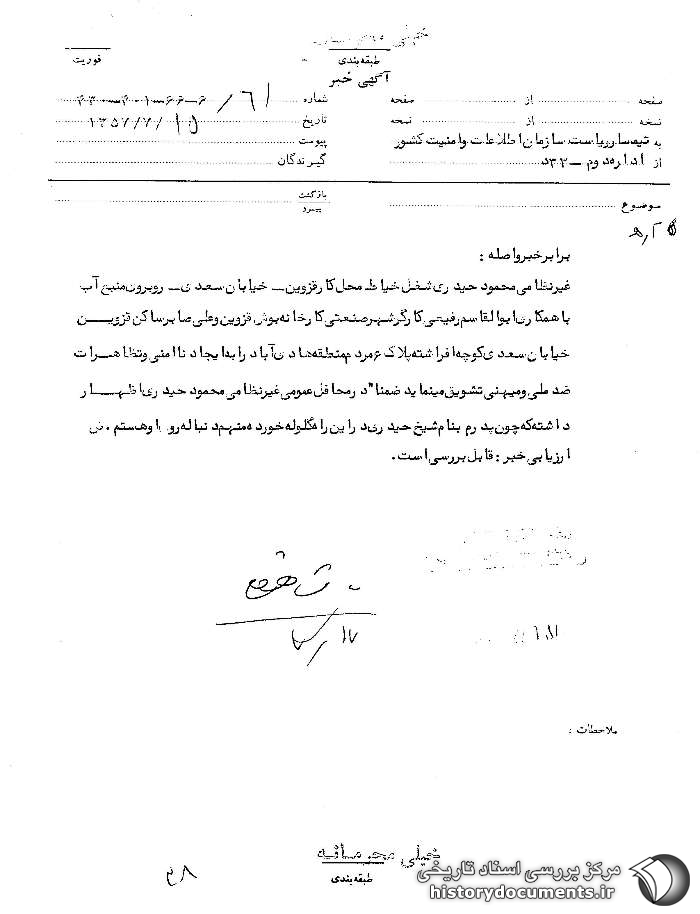 طبقه‌بندی
فوریت
آگهی خبر
صفحه از صفحه شماره ۶۱/
نسخه از نسخه تاریخ ۱۳۵۷/۷/۱۵
به تیمسار ریاست سازمان اطلاعات و امنیت کشور پیوست
از اداره دوم ـ د۳۳ گیرندگان
بازگشت
موضوع پیرو
برابر خبر واصله :
غیرنظامی محمود حیدری شغل خیاط محل کار قزوین ـ خیابان سعدی ـ روبرون منبع آب
با همکاری ابوالقاسم رفیعی کارگر شهر صنعتی کارخانه پوش قزوین و علی صابر ساکن قزویـــن
خیابان سعدی کوچه افراشته پلاک ۶ مردم منطقه هادی آباد را به ایجاد ناامنی و تظاهــرات
ضد ملی و میهنی تشویق مینماید ضمنا" در محافل عمومی غیرنظامی محمود حیدری اظهـــار
داشته که چون پدرم بنام شیخ حیدری در این راه گلوله خورده منهم دنباله رو او هستم . ض
ارزیابی خبر : قابل بررسی است .
ملاحظات :
خیلی محرمانه
طبقه‌بندی
مرکز بررسی اسناد تاریخی
historydocuments.ir